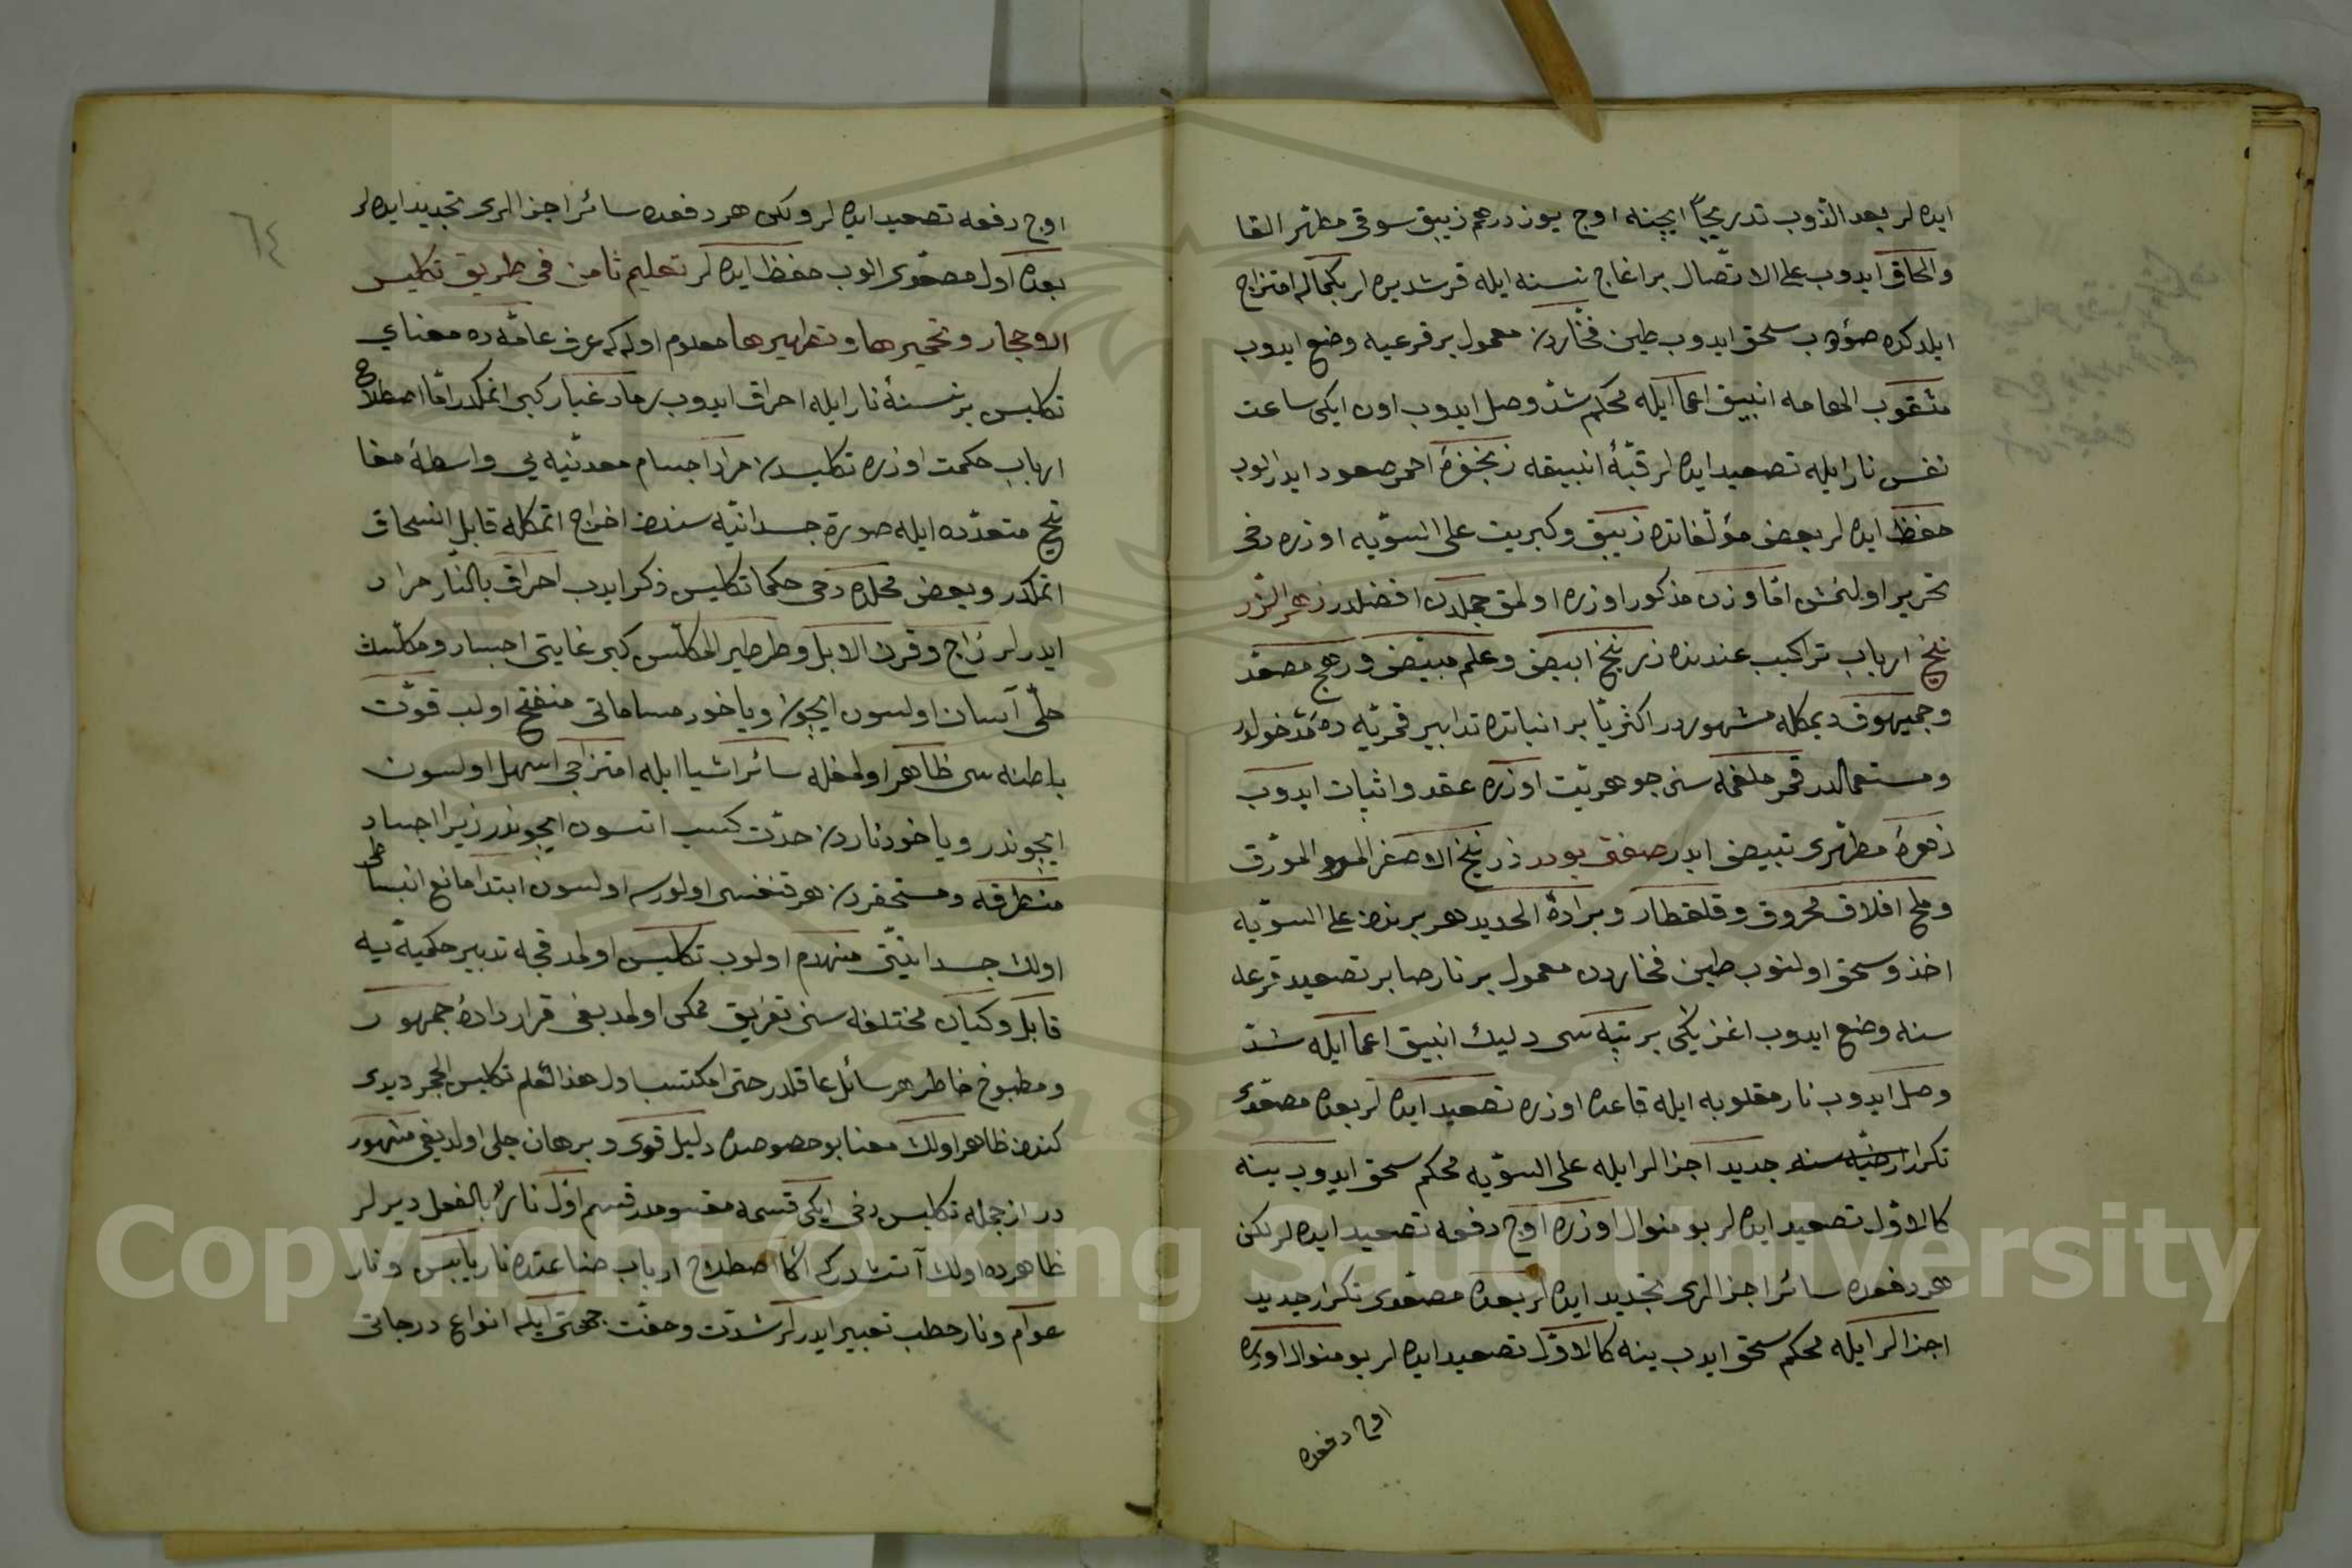 ايده لر بعد الذوب تدريجاً ايچنه اوچ يوز درهم زيبق سوقی مطهر القا
والحاق ايدوب علی الاتصال بر اغاج نسنه ايله قرشديره لر بكماله امتزاج
ايلدكده صؤدب سحق ايدوب طين فخاردن معمول بر قرعيه وضع ايدوب
مثقوب الهامه انبيق اعما ايله محكم شد وصل ايدوب اون ايكی ساعت
نفس نار ايله تصعيد ايده لر قبۀ انبيقه زنجفرۀ احمر صعود ايدر الوب
حفظ ايده لر بعض مؤلفاتده زيبق وكبريت علی السويه اوزره دخی
تحرير اولنمش اما وزن مذكور اوزره اولمق جمله دن افضلدر زهر الزر
نيخ ارباب تراكيب عندنده زرنيخ ابيض وعلم مبيض ورهج مصعد
وجميهوق ديمكله مشهوردر اكثريا بر انباتده تدابير قمريه ده مدخولدر
ومستعملدر قمر ملغمه سنی جوهريت اوزره عقد واثبات ايدوب
زهرۀ مطهری تبيض ايدر صفتی بودر زرنيخ الاصفر المورق
وملح افلاق محروق وقلقطار وبرادۀ الحديد هر برندن علی السويه
اخذ وسحق اولنوب طين فخاردن معمول بر نار صابر تصعيد قرعه
سنه وضع ايدوب اغز يكی بر تپه سی دليك انبيق اعما ايله شد
وصل ايدوب نار مقلوبه ايله قاعده اوزره تصعيد ايده لر بعده مصعدی
تكرار جديد اجزالر ايله علی السويه محكم سحق ايدوب ينه
كالاول تصعيد ايده لر بو منوال اوزره اوچ دفعه تصعيد ايده لر لكن
هر دفعده سائر اجزالری تجديد ايده لر بعده مصعدی تكرار جديد
اجزالر ايله محكم سحق ايدب ينه كالاول تصعيد ايده لر بو منوال اوزره
اوچ دفعه
٦٤
اوچ دفعه تصعيد ايده لر ولكن هر دفعده سائر اجزالری تجديد ايده لر
بعده اول مصعدی الوب حفظ ايده لر تعليم ثامن فی طريق تكليس
الاوجار وتخميرها وتطهيرها معلوم اوله كه عرف عامه ده معنای
تكليس بر نسنۀ نار ايله احراق ايدوب رماد غبار كبی اتمكدر اما اصطلاح
ارباب حكمت اوزره تكليسدن مراد اجسام معدنيه يی واسطۀ مفا
تيح متعدده ايله صورة جسدانيه سندن اخراج اتمكله قابل انسحاق
اتمكدر وبعض محلده دخی حكما تكليس ذكر ايدب احراق بالنار مراد
ايدر لر زاج وقرن الابل وطرطير المكلس كبی غايتی اجساد ومكلسك
حلی آسان اولسون ايچون ويا خود مساماتی منفتح اولب قوت
باطنه سی ظاهر اولمغله سائر اشيا ايله امتزاجی اسهل اولسون
ايچوندر ويا خود ناردن حدت كسب اتسون ايچوندر زيرا اجساد
منطرقه ومستحقردن هر قنغسی اولورسه اولسون ابتدا مانع انبساطی
اولان جسدانيتی منهدم اولوب تكليس اولمدقجه تدبير حكميه يه
قابل وكيان مختلفه سنی تفريق ممكن اولمديغی قرار دادۀ جمهور
ومطبوخ خاطر هر سائل عاقلدر حتی امكتسب اول هذا العلم تكليس الحجر ديدی
كندن ظاهر اولان معنا بو خصوصده دليل قوی وبرهان جلی اولديغی مشهور
در از جمله تكليس دخی ايكی قسمه مقسومدر قسم اول نارٌ بالفعل ديرلر
ظاهرده اولان آتشدر كه اكا اصطلاح ارباب صناعتده نار يابس ونار
عوام ونار حطب تعبير ايدرلر شدت وخفت جهتی ايله انواع درجاتی
Copyright © King Saud University
1957